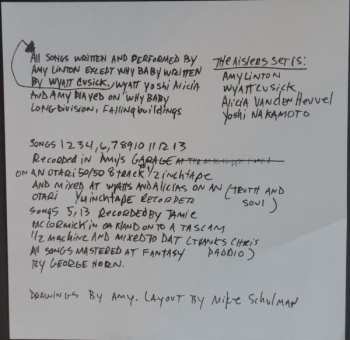 All SONGS WRITTEN AND PERFORMED BY
AMY LINTON EXCEPT WHY BABY WRITTEN
BY WYATT CUSICK. WYATT YOSHI Alicia
AND AMY PLAYED ON WHY BABY
LONG DIVISION, FALLING buildings
The Aislers Set IS:
AMY LINTON
WYATT CUSICK
Alicia VANDEN HEUVEL
YOSHI NAKAMOTO
SONGS 1 2 3 4, 6, 7 8 9 10 11 12 13
RECORDED IN AMY'S GARAGE
ON AN OTARI 50/50 8 TRACK 1/2 INCH TAPE
AND MIXED AT WYATTS AND ALICIAS ON AN (TRUTH AND
OTARI 1/4 INCH TAPE RECORDER SOUL)
SONGS 5, 13 RECORDED BY JAMIE
MCCORMICK IN OAKLAND ON TO A TASCAM
1/2 MACHINE AND MIXED TO DAT (THANKS CHRIS
All SONGS MASTERED AT FANTASY DADDIO)
BY GEORGE HORN.
DRAWINGS BY AMY. LAYOUT BY Mike SCHULMAN